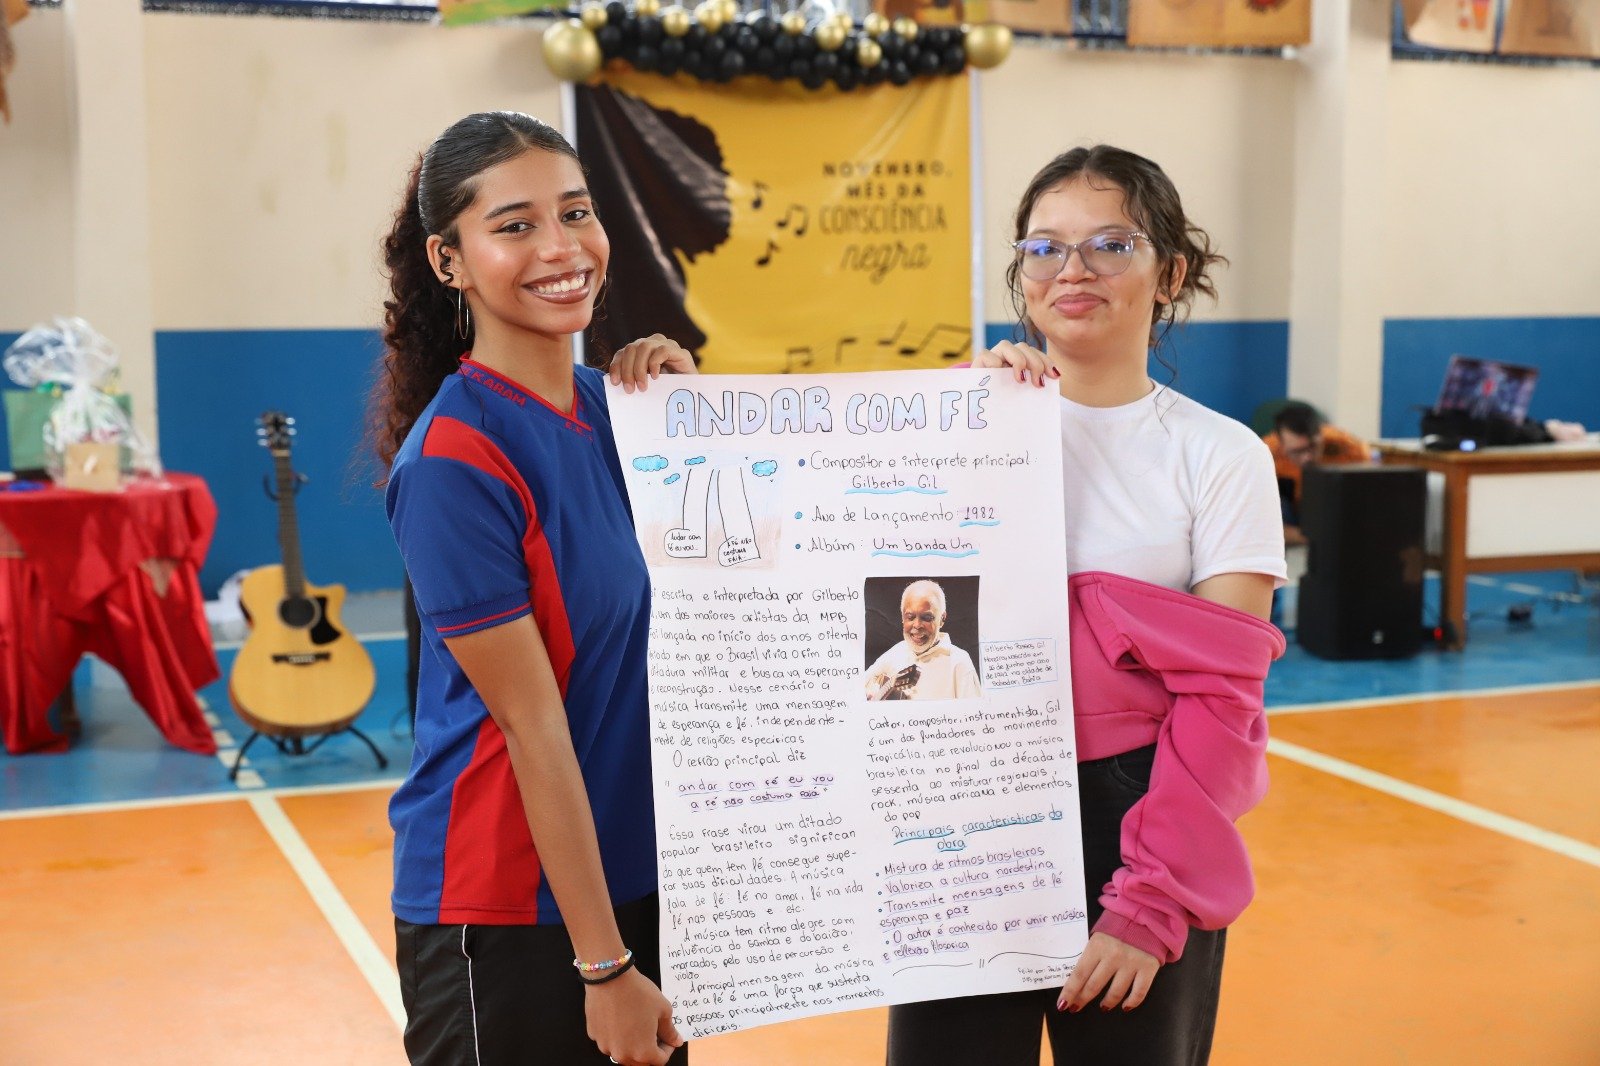 NOVEMBRO,
MÊS DA
CONSCIÊNCIA
negra
KARAM
ANDAR COM FÉ
• Compositor e interprete principal:
Gilberto Gil
• Ano de Lançamento: 1982
• Albúm: Um banda Um
Andar com
fé eu vou...
A FÉ NÃO
costuma
FAIÁ
escrita e interpretada por Gilberto
um dos maiores artistas da MPB
lançada no início dos anos oitenta
em que o Brasil vivia o fim da
ditadura militar e buscava esperança
e reconstrução. Nesse cenário a
música transmite uma mensagem
de esperança e fé, independente-
mente de religiões especificas
O refrão principal diz
"andar com fé eu vou
a fé não costuma faiá"
Essa frase virou um ditado
popular brasileiro significan
do que quem tem fé consegue supe-
rar suas dificuldades. A música
fala de fé: fé no amor, fé na vida
fé nas pessoas e etc.
A música tem ritmo alegre com
influência do samba e do baião,
marcados pelo uso de percursão e
violão
A principal mensagem da música
é que a fé é uma força que sustenta
as pessoas principalmente nos momentos
dificeis.
Gilberto Passos Gil
Moreira nascido em
26 de Junho do ano
de 1942 na cidade de
Salvador, Bahia
Cantor, compositor, instrumentista, Gil
é um dos fundadores do movimento
Tropicália, que revolucionou a música
brasileira no final da década de
sessenta ao misturar regionais,
rock, música africana e elementos
do pop
Principais caracteristicas da
obra
• Mistura de ritmos brasileiros
• Valoriza a cultura nordestina
• Transmite mensagens de fé
esperança e paz
• O autor é conhecido por unir música
e reflexão filosofica
Feito por: